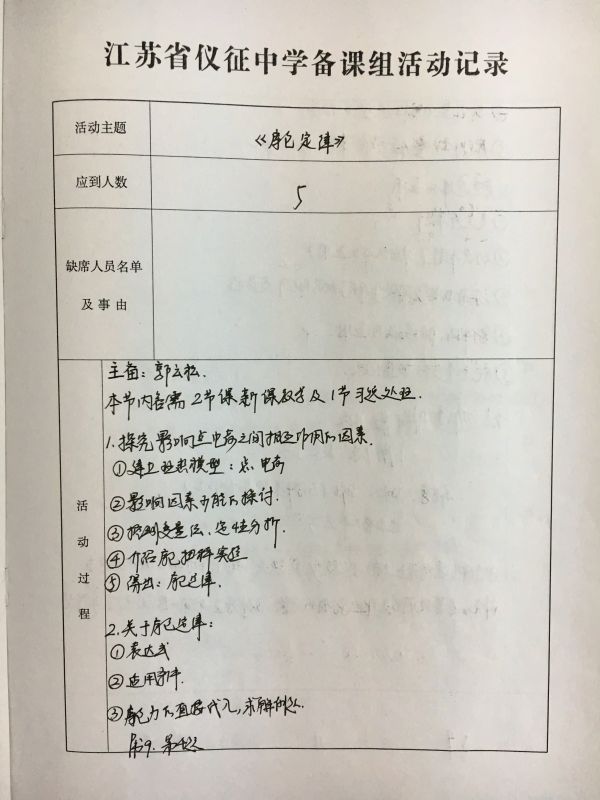 江苏省仪征中学备课组活动记录
活动主题
《库仑定律》
应到人数
5
缺席人员名单
及事由
活动过程
主备：郭云松.
本节内容需2节课新课教学及1节习题处理.
1.探究影响点电荷之间相互作用的因素.
①建立理想模型：点电荷
②影响因素可能的探讨.
③控制变量法、定性分析.
④介绍库仑扭秤实验
⑤得出：库仑定律.
2.关于库仑定律：
①表达式
②适用条件.
③库仑力的直接代入,求解